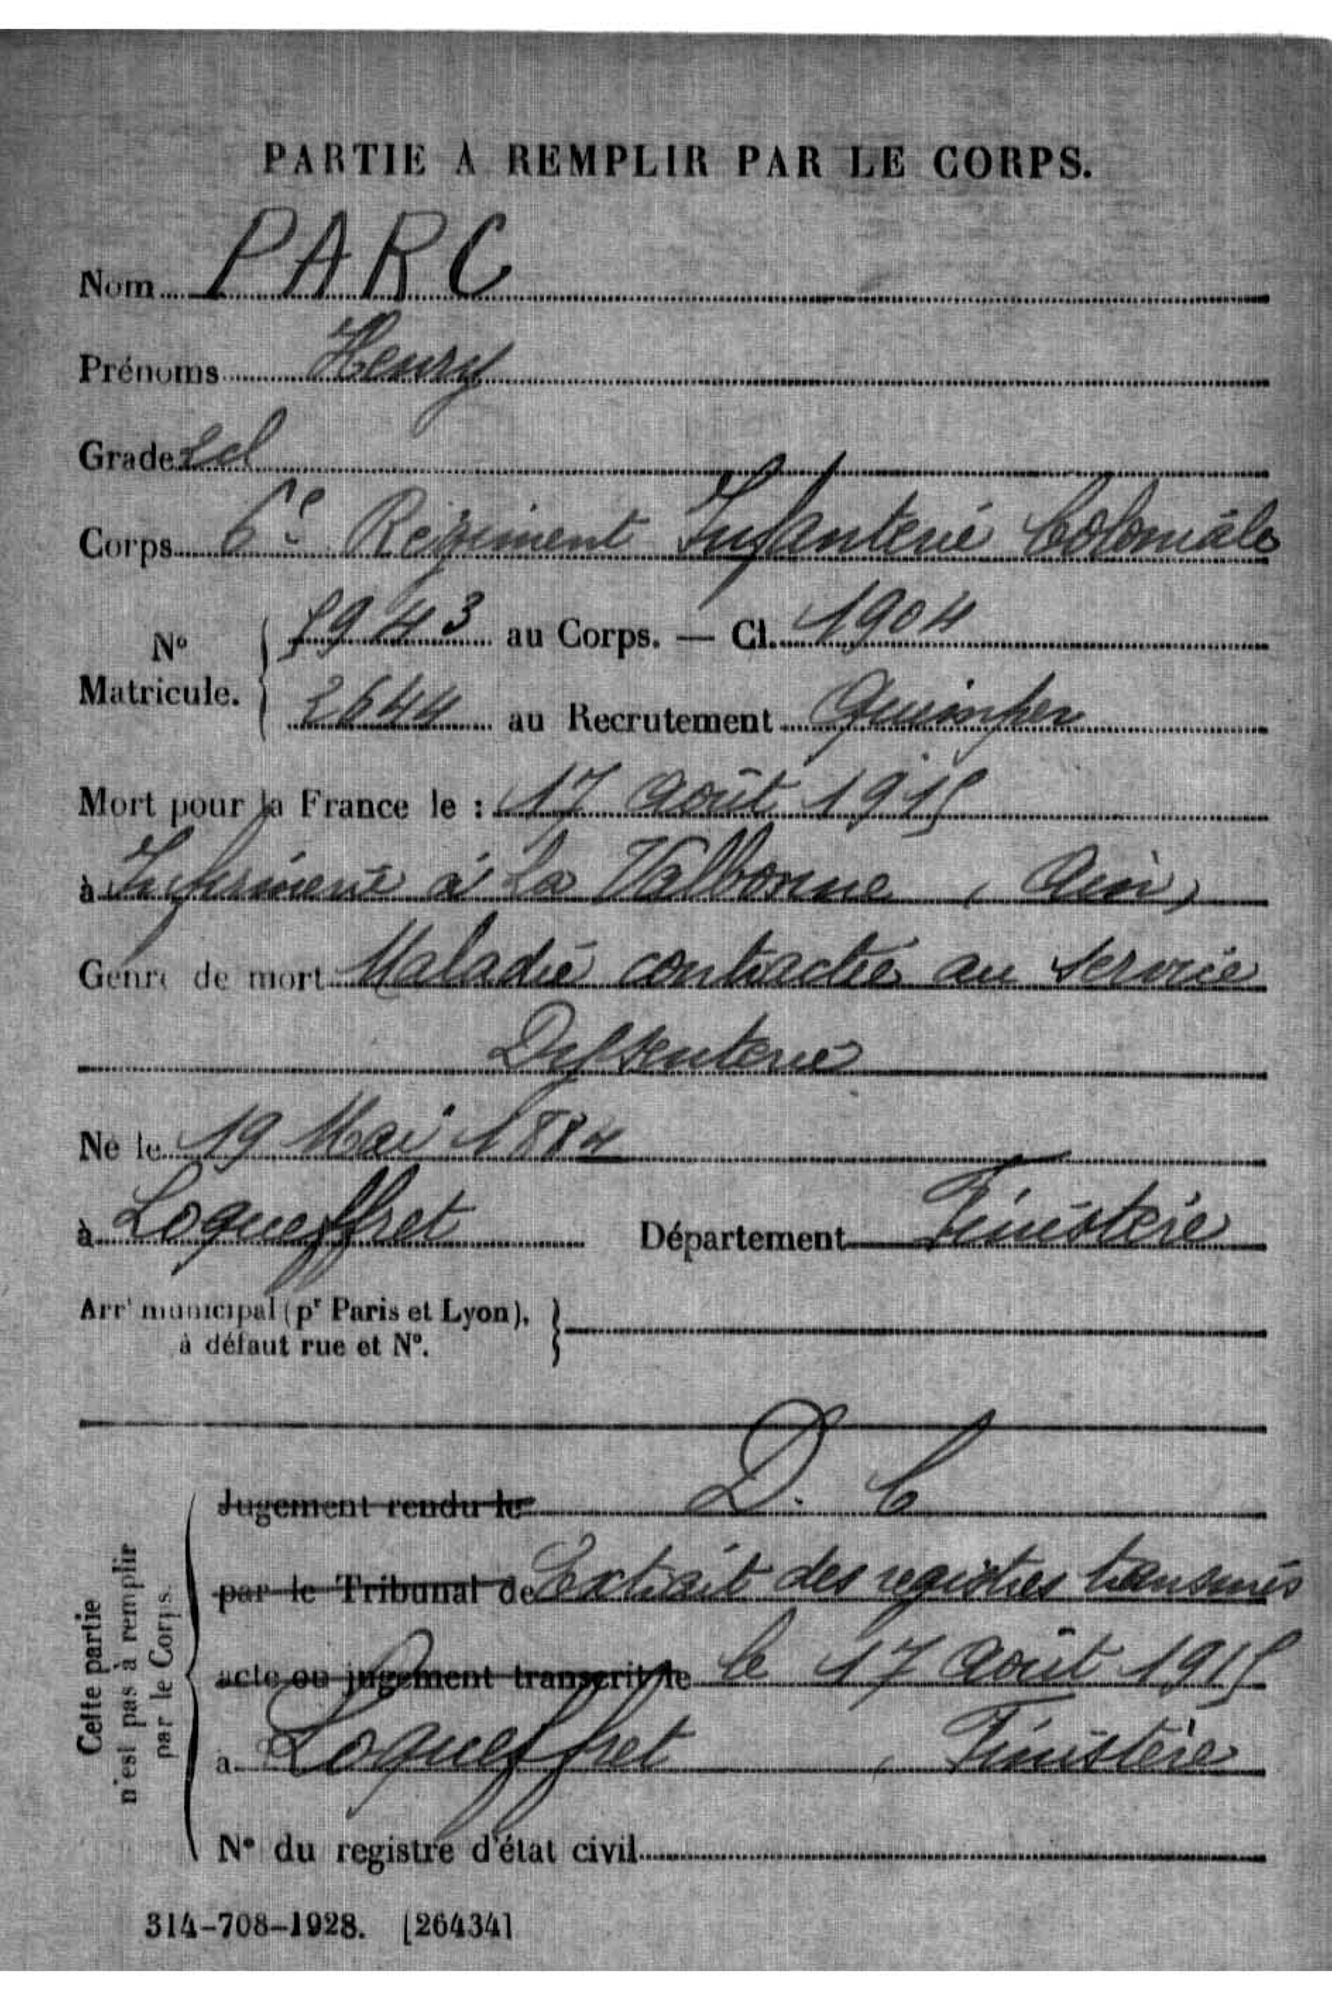 PARTIE À REMPLIR PAR LE CORPS.
Nom PARC
Prénoms Henry
Grade 2 cl
Corps 6e Régiment Infanterie Coloniale
N° Matricule. 5943 au Corps. — Cl. 1904
2644 au Recrutement Quimper
Mort pour la France le : 17 Août 1915
à Infirmerie à La Valbonne (Ain)
Genre de mort Maladie contractée au service
Dyssenterie
Né le 19 Mai 1884
à Loqueffret Département Finistère
Arrt municipal (pr Paris et Lyon),
à défaut rue et N°.
D. C
Jugement rendu le
par le Tribunal de Extrait des registres transmis
acte ou jugement transcrit le le 17 Août 1915
à Loqueffret, Finistère
N° du registre d'état civil
Cette partie
n'est pas à remplir
par le Corps.
314-708-1928. [26434]